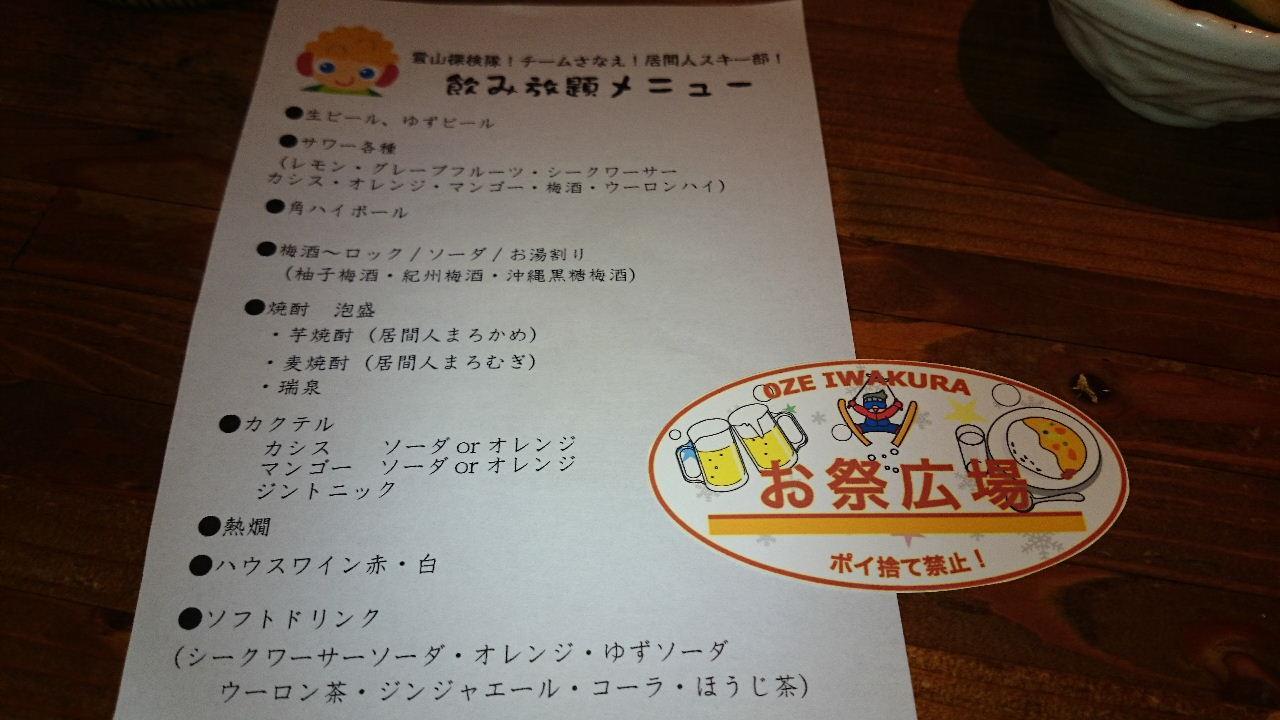 雪山探検隊！チームさなえ！居間人スキー部！
飲み放題メニュー
●生ビール、ゆずビール
●サワー各種
（レモン・グレープフルーツ・シークワーサー
カシス・オレンジ・マンゴー・梅酒・ウーロンハイ）
●角ハイボール
●梅酒～ロック/ソーダ/お湯割り
（柚子梅酒・紀州梅酒・沖縄黒糖梅酒）
●焼酎　泡盛
・芋焼酎（居間人まろかめ）
・麦焼酎（居間人まろむぎ）
・瑞泉
●カクテル
カシス　ソーダorオレンジ
マンゴー　ソーダorオレンジ
ジントニック
●熱燗
●ハウスワイン赤・白
●ソフトドリンク
（シークワーサーソーダ・オレンジ・ゆずソーダ
ウーロン茶・ジンジャエール・コーラ・ほうじ茶）
OZE IWAKURA
お祭広場
ポイ捨て禁止！